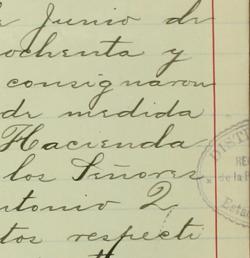 Junio de
ochenta y
consignaron
de medida
Hacienda
los Señores
ntonio 2
tos respecti
DIST
RE
de la P
Esta